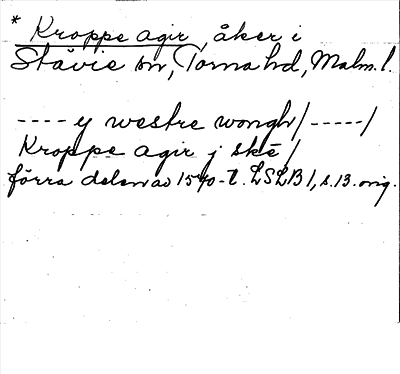 * Kroppe agir, åker i
Stävie sn, Torna hd, Malm. l.
---- y westre wongh/-----/
Kroppe agir j skė /
förra delen av 1540-t. LSLB 1, s. 13. orig.